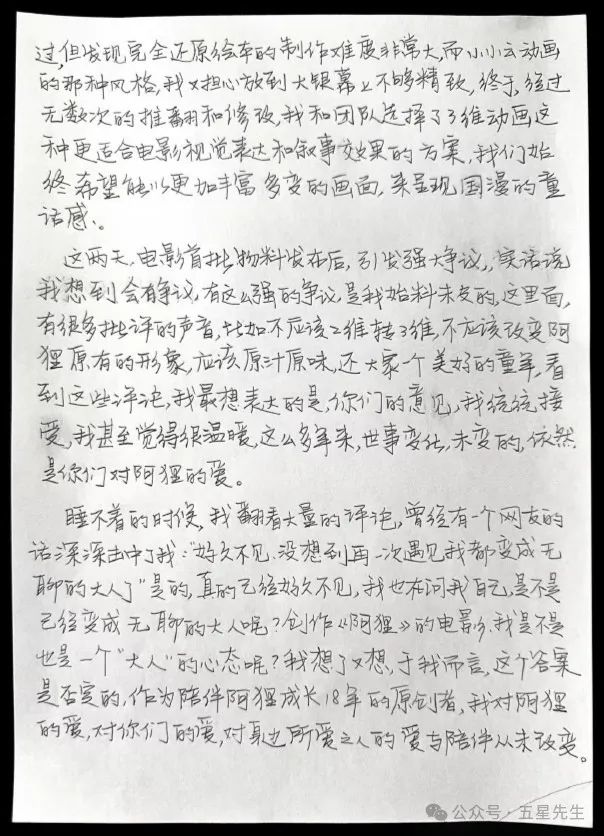 过,但发现完全还原绘本的制作难度非常大,而小小云动画
的那种风格,我又担心放到大银幕上不够精致,终于,经过
无数次的推翻和修改,我和团队选择了3维动画这
种更适合电影视觉表达和叙事效果的方案,我们始
终希望能以更加丰富多变的画面,来呈现国漫的童
话感。
这两天,电影首批物料发布后,引发强大争议,实话说
我想到会有争议,有这么强的争议,是我始料未及的,这里面,
有很多批评的声音,比如不应该2维转3维,不应该改变阿
狸原有的形象,应该原汁原味,还大家一个美好的童年,看
到这些评论,我最想表达的是,你们的意见,我统统接
受,我甚至觉得很温暖,这么多年来,世事变化,未变的,依然
是你们对阿狸的爱。
睡不着的时候,我翻看大量的评论,曾经有一个网友的
话深深击中了我:“好久不见,没想到再一次遇见我都变成无
聊的大人了”是的,真的已经好久不见,我也在问我自己,是不是
已经变成无聊的大人呢?创作《阿狸》的电影,我是不是
也是一个“大人”的心态呢?我想了又想,于我而言,这个答案
是否定的,作为陪伴阿狸成长18年的原创者,我对阿狸
的爱,对你们的爱,对身边所爱之人的爱与陪伴从未改变。
公众号·五星先生